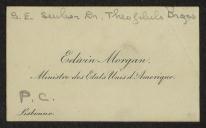 S. E. Senhor Dr. Theofilo Braga
Edwin Morgan.
Ministre des Etats Unis d'Amerique.
P. C.
Lisbonne.